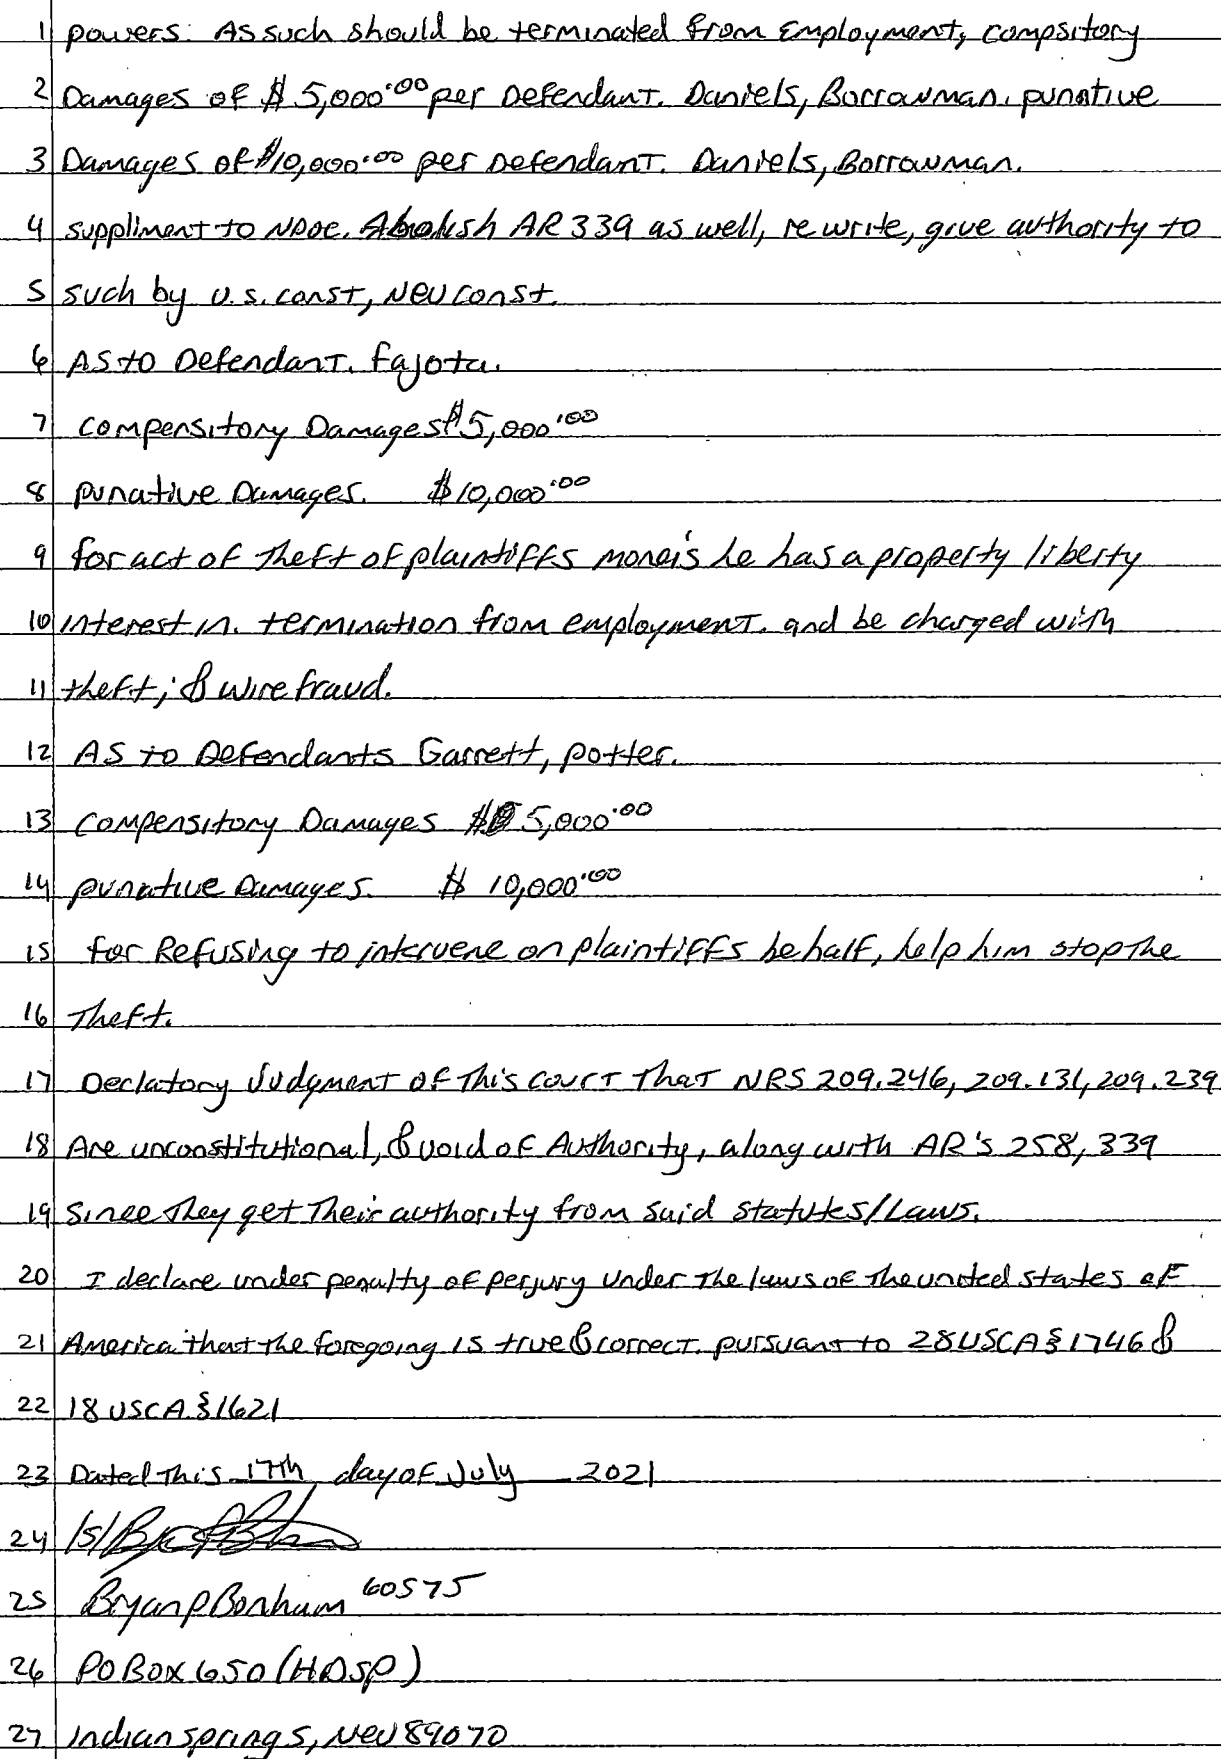 1 powers: As such should be terminated from Employment, compsitory
2 Damages of $ 5,000.00 per Defendant. Daniels, Borrowman. punative
3 Damages of $10,000.00 per Defendant. Daniels, Borrowman.
4 suppliment to NDOC. Abolish AR 339 as well, re write, give authority to
5 such by U.S. const, Nev const.
6 As to Defendant. Fajota.
7 compensitory Damages $5,000.00
8 punative Damages. $10,000.00
9 for act of theft of plaintiffs moneis he has a property liberty
10 interest in. termination from employment. and be charged with
11 theft; & wire fraud.
12 As to Defendants Garrett, Potter.
13 compensitory Damages $ 5,000.00
14 punative Damages. $ 10,000.00
15 for Refusing to intervene on plaintiffs behalf, help him stop the
16 Theft.
17 Declatory Judgment of this court that NRS 209.246, 209.131, 209.239
18 Are unconstitutional, & void of Authority, along with AR's 258, 339
19 since they get their authority from said statutes/Laws.
20 I declare under penalty of perjury under the laws of the united states of
21 America that the foregoing is true & correct. pursuant to 28 USCA § 1746 &
22 18 USCA. § 1621
23 Dated This 17th day of July 2021
24 /s/
25 Bryan P Bonham 60575
26 PO Box 650 (HDSP)
27 Indian springs, Nev 89070